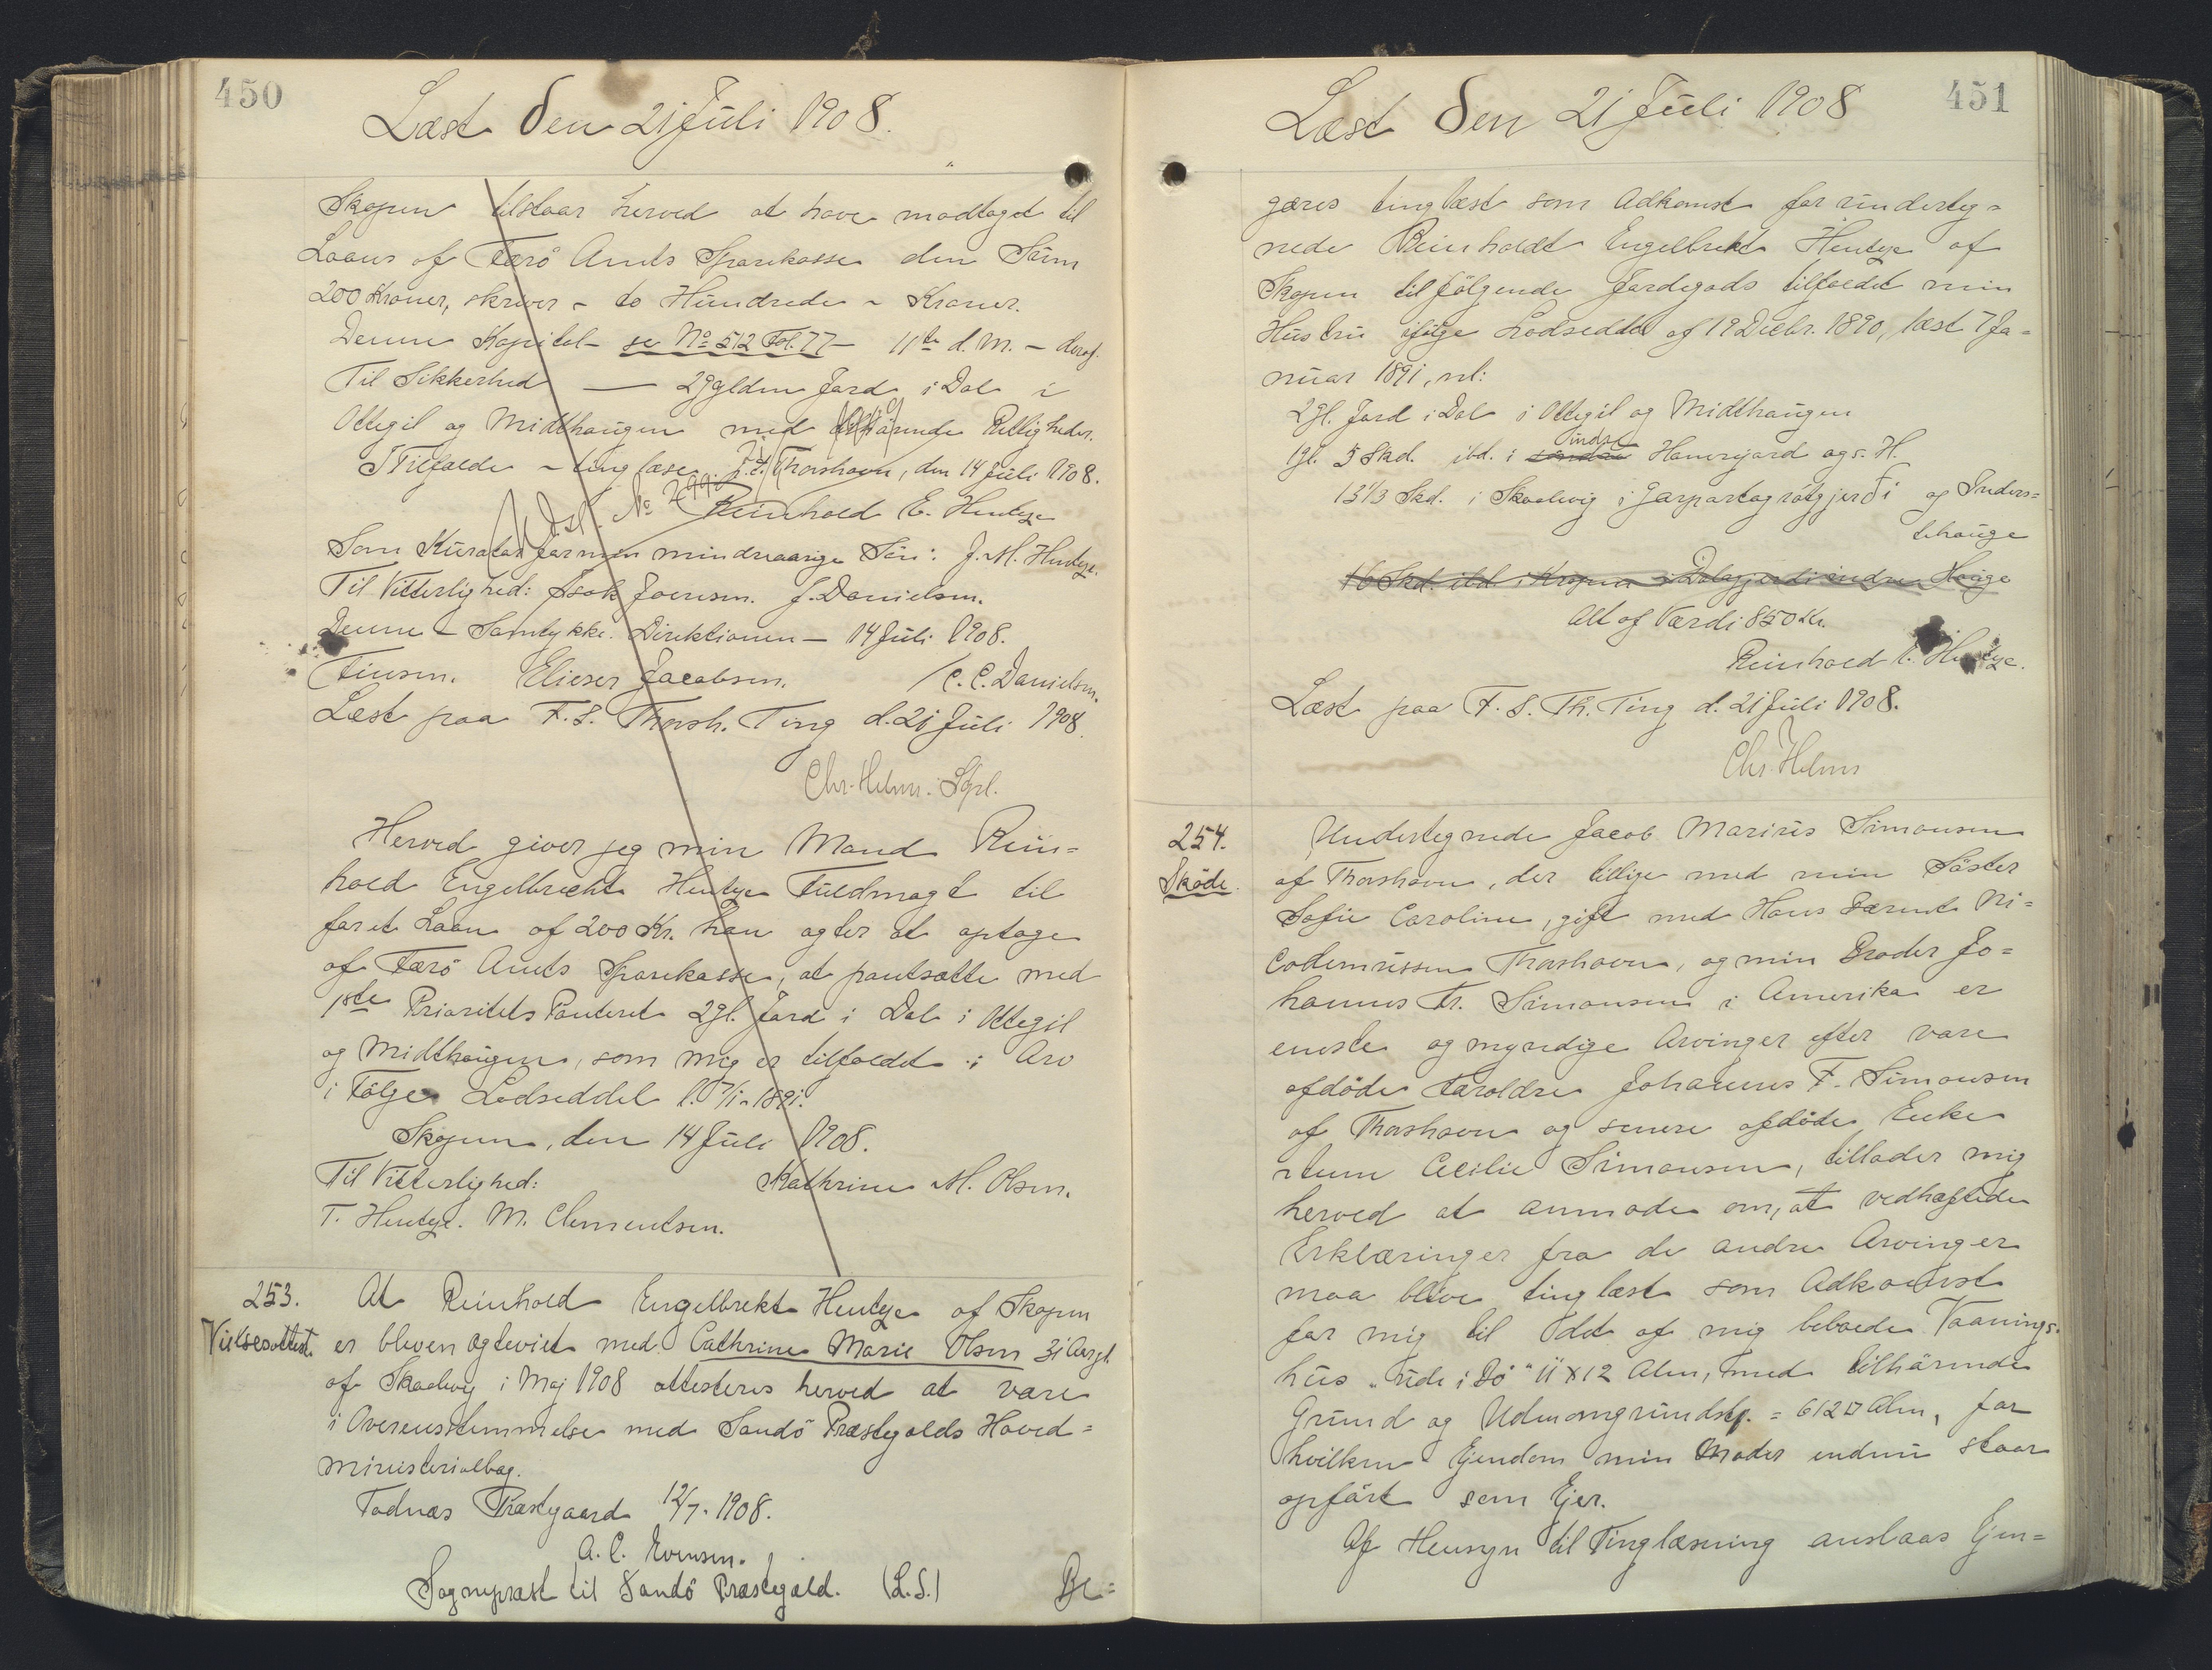 450
Læst den 21 Juli 1908.
Skopun tilstaar herved at have modtaget til
Laans af Færö Amts Sparekasse den Sum
200 Kroner, skriver - to Hundrede - Kroner.
Denne Kapital - se No 512 Fol. 77 - 11te d. M. - deraf.
Til Sikkerhed — 2 gylden Jord i Dal i
Ottegil og Midthaugen med tilhörende Rettigheder.
I Tilfælde - tinglæses. p. t. Thorshavn, den 14 Juli 1908.
Reinhold E. Hentze
Som Kurator for min mindreaarige Sön: J. M. Hentze.
Til Vitterlighed: Isak Joensen. J. Danielsen.
Denne - Samtykke. Direktionen - 14 Juli 1908.
Finsen. Elieser Jacobsen. /C. C. Danielsen.
Læst paa F. S. Thorsh. Ting d. 21 Juli 1908.
Chr. Helms. Sgpl.
Herved giver jeg min Mand Rein=
hold Engelbrecht Hentze Fuldmagt til
for et Laan af 200 Kr. han agter at optage
af Færö Amts Sparekasse, at pantsætte med
1ste Prioritets Panteret 2 gl. Jord i Dal i Ottegil
og Midthaugen, som mig er tilfaldet i Arv
i Fölge Lodseddel l. 7/1 - 1891.
Skopun, den 14 Juli 1908.
Til Vitterlighed: Kathrine M. Olsen.
T. Hentze. M. Clementsen.
253.
Vielsesattest.
At Reinhold Engelbrekt Hentze af Skopun
er bleven ægteviet med Cathrine Marie Olsen 31 Aar gl.
af Skaalevig i Maj 1908 attesteres herved at være
i Overensstemmelse med Sandö Præstegjælds Hoved=
ministerialbog.
Todnæs Præstegaard 12/7. 1908.
A. C. Evensen.
Sognepræst til Sandö Præstegæld. (L. S.) Be=
451
Læst den 21 Juli 1908
gæres tinglæst som Adkomst for underteg=
nede Reinholdt Engelbrekt Hentze af
Skopun til fölgende Jordegods tilfaldet min
Hustru ifölge Lodseddel af 19 Decbr. 1890, læst 7 Ja=
nuar 1891, nl:
2 gl. Jord i Dal i Ottegil og Midthaugen
indre
1 gl. 5 Skd. ibd. i söndre Hamrejord ags. H.
13 1/3 Skd. i Skaalevig i Garpartagrótgjerði og Inders=
tehauge
16 Skd. ibd. i Kropun i Dalagjerdi indre Hauge
Alt af Værdi 850 Kr.
Reinhold E. Hentze.
Læst paa F. S. Th. Ting d. 21 Juli 1908.
Chr. Helms
254.
Sköde.
Undertegnede Jacob Marius Simonsen
af Thorshavn, der tillige med min Söster
Sofie Caroline, gift med Hans Berent Ni=
codemussen Thorshavn, og min Broder Jo=
hannes Fr. Simonsen i Amerika er
eneste og myndige Arvinger efter vore
afdöde Foroldre Johannes F. Simonsen
af Thorshavn og senere afdöde Enke
stum Cecilie Simonsen, tillader mig
herved at anmode om, at vedhæftede
Erklæringer fra de andre Arvinger
maa blive tinglæst som Adkomst
for mig til det af mig beboede Vaanings-
hus "ude i Bö" 11 x 12 Alen, med tilhörende
Grund og Udenomgrundst. = 612 □ Alen, for
hvilken Ejendom min Moder endnu staar
opfört som Ejer.
Af Hensyn til Tinglæsning anslaas Ejen=